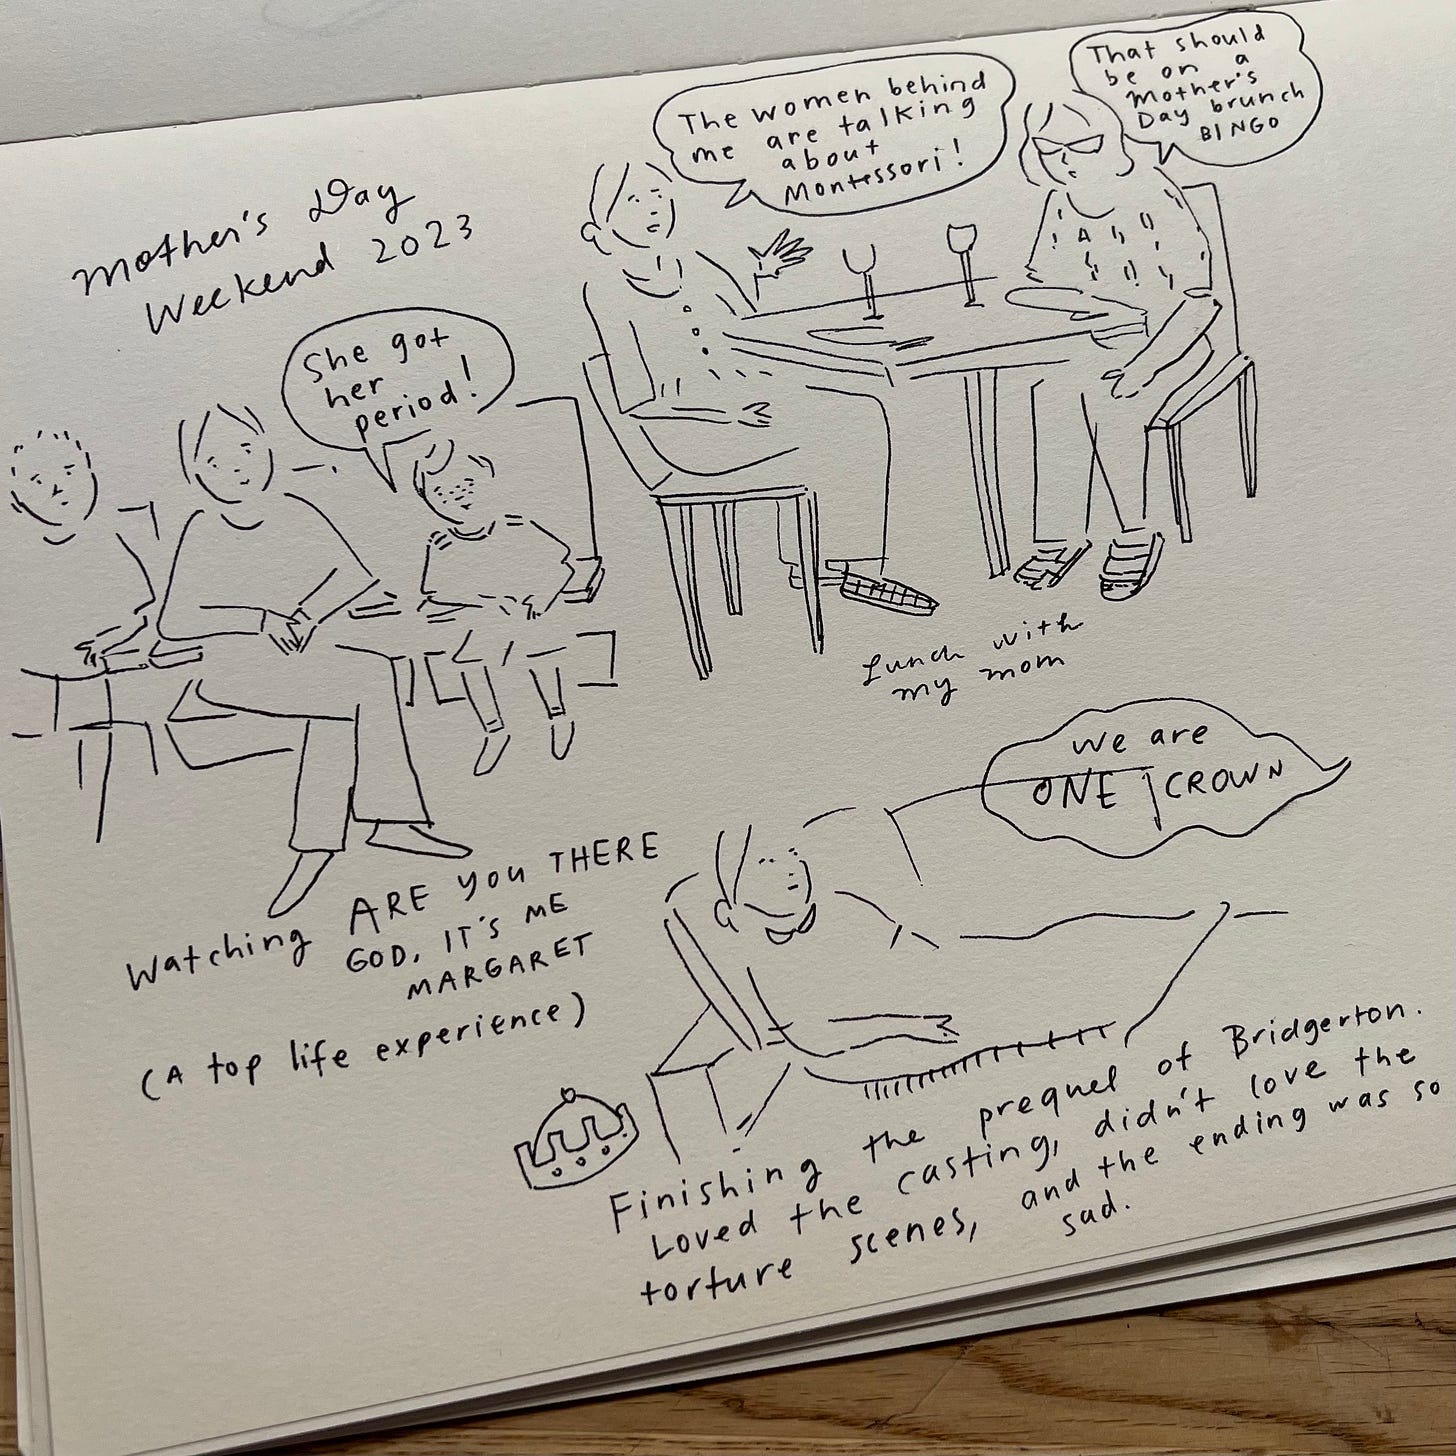 Mother's Day
Weekend 2023
She got
her
period!
Watching ARE YOU THERE
GOD, IT'S ME
MARGARET
(A top life experience)
The women behind
me are talking
about
Montessori!
That should
be on a
Mother's
Day brunch
BINGO
Lunch with
my mom
We are
ONE CROWN
Finishing the prequel of Bridgerton.
Loved the casting, didn't love the
torture scenes, and the ending was so
sad.